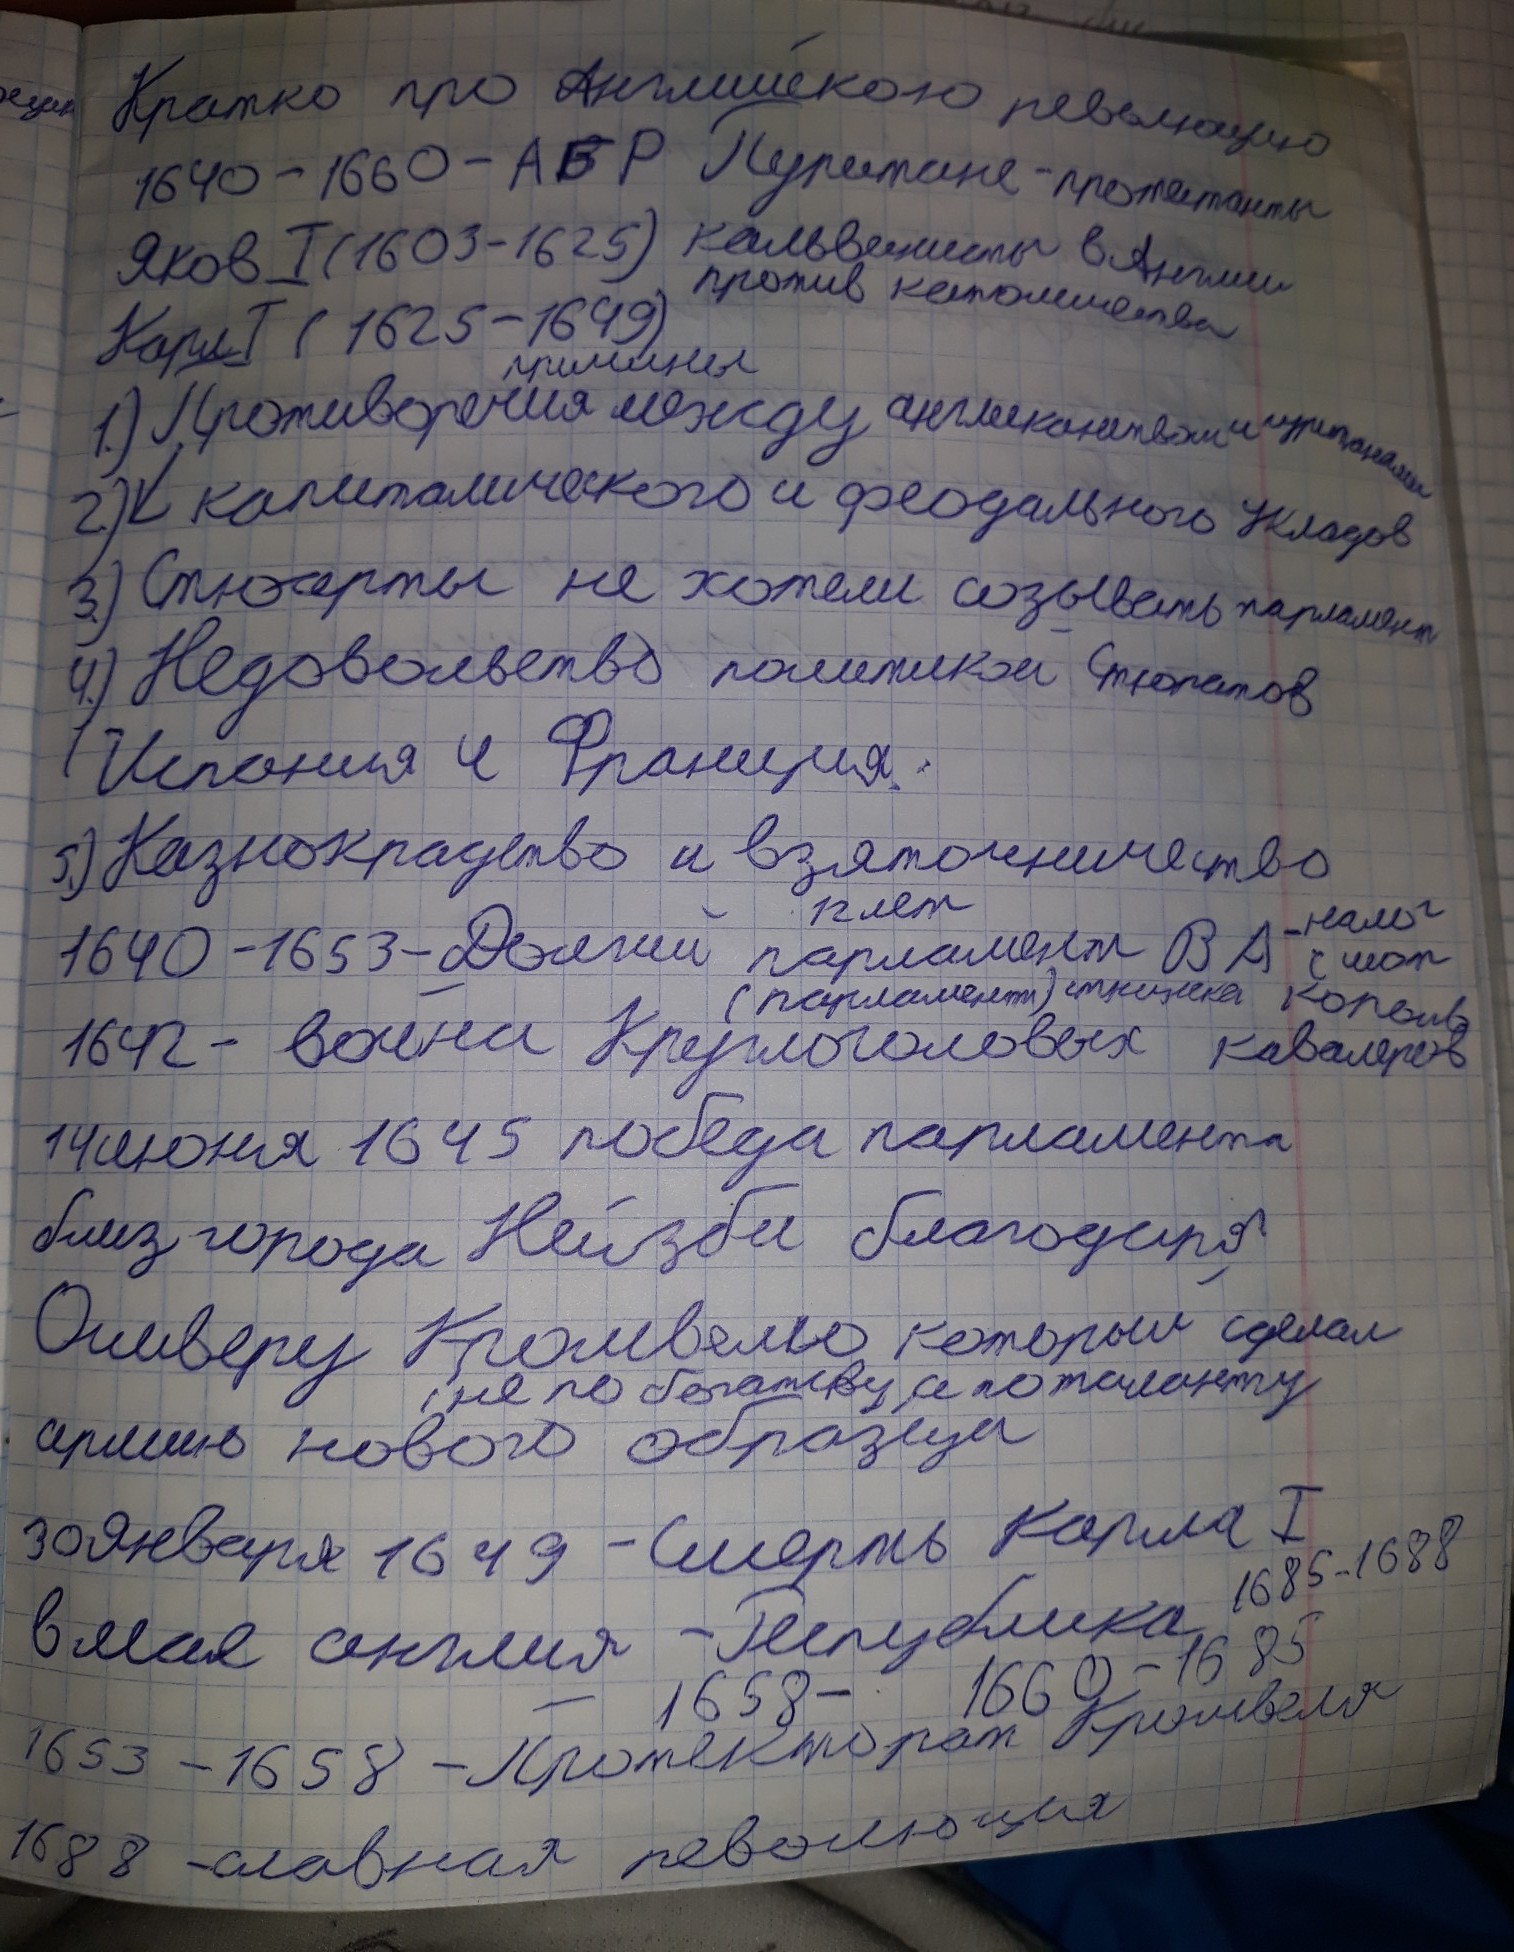 Кратко про Английскою революцию
1640-1660-АБР Пуритане-протестанты
Яков I (1603-1625) кальвинисты в Англии
против католичества
Карл I (1625-1649)
причины
1.) Противоречия между англиканством и пуританами
2.) капиталического и феодального укладов
3.) Стюарты не хотели созывать парламент
4.) Недовольство политикой Стюратов
Испания и Франция.
5.) Казнокрадство и взяточничество
12 лет
1640-1653-Долгий парламент ВА -налог
(парламент) стрижка король
1642- война Круглоголовых кавалеров
14 июня 1645 победа парламента
близ города Нейзби благодаря
Оливеру Кромвелю который сделал
(не по богатству, а по таланту
армию нового образца
30 Января 1649 - Смерть Карла I
1685-1688
в мае англия - Республика
1658- 1660-1685
1653-1658-Протекторат Кромвеля
1688 -славная революция